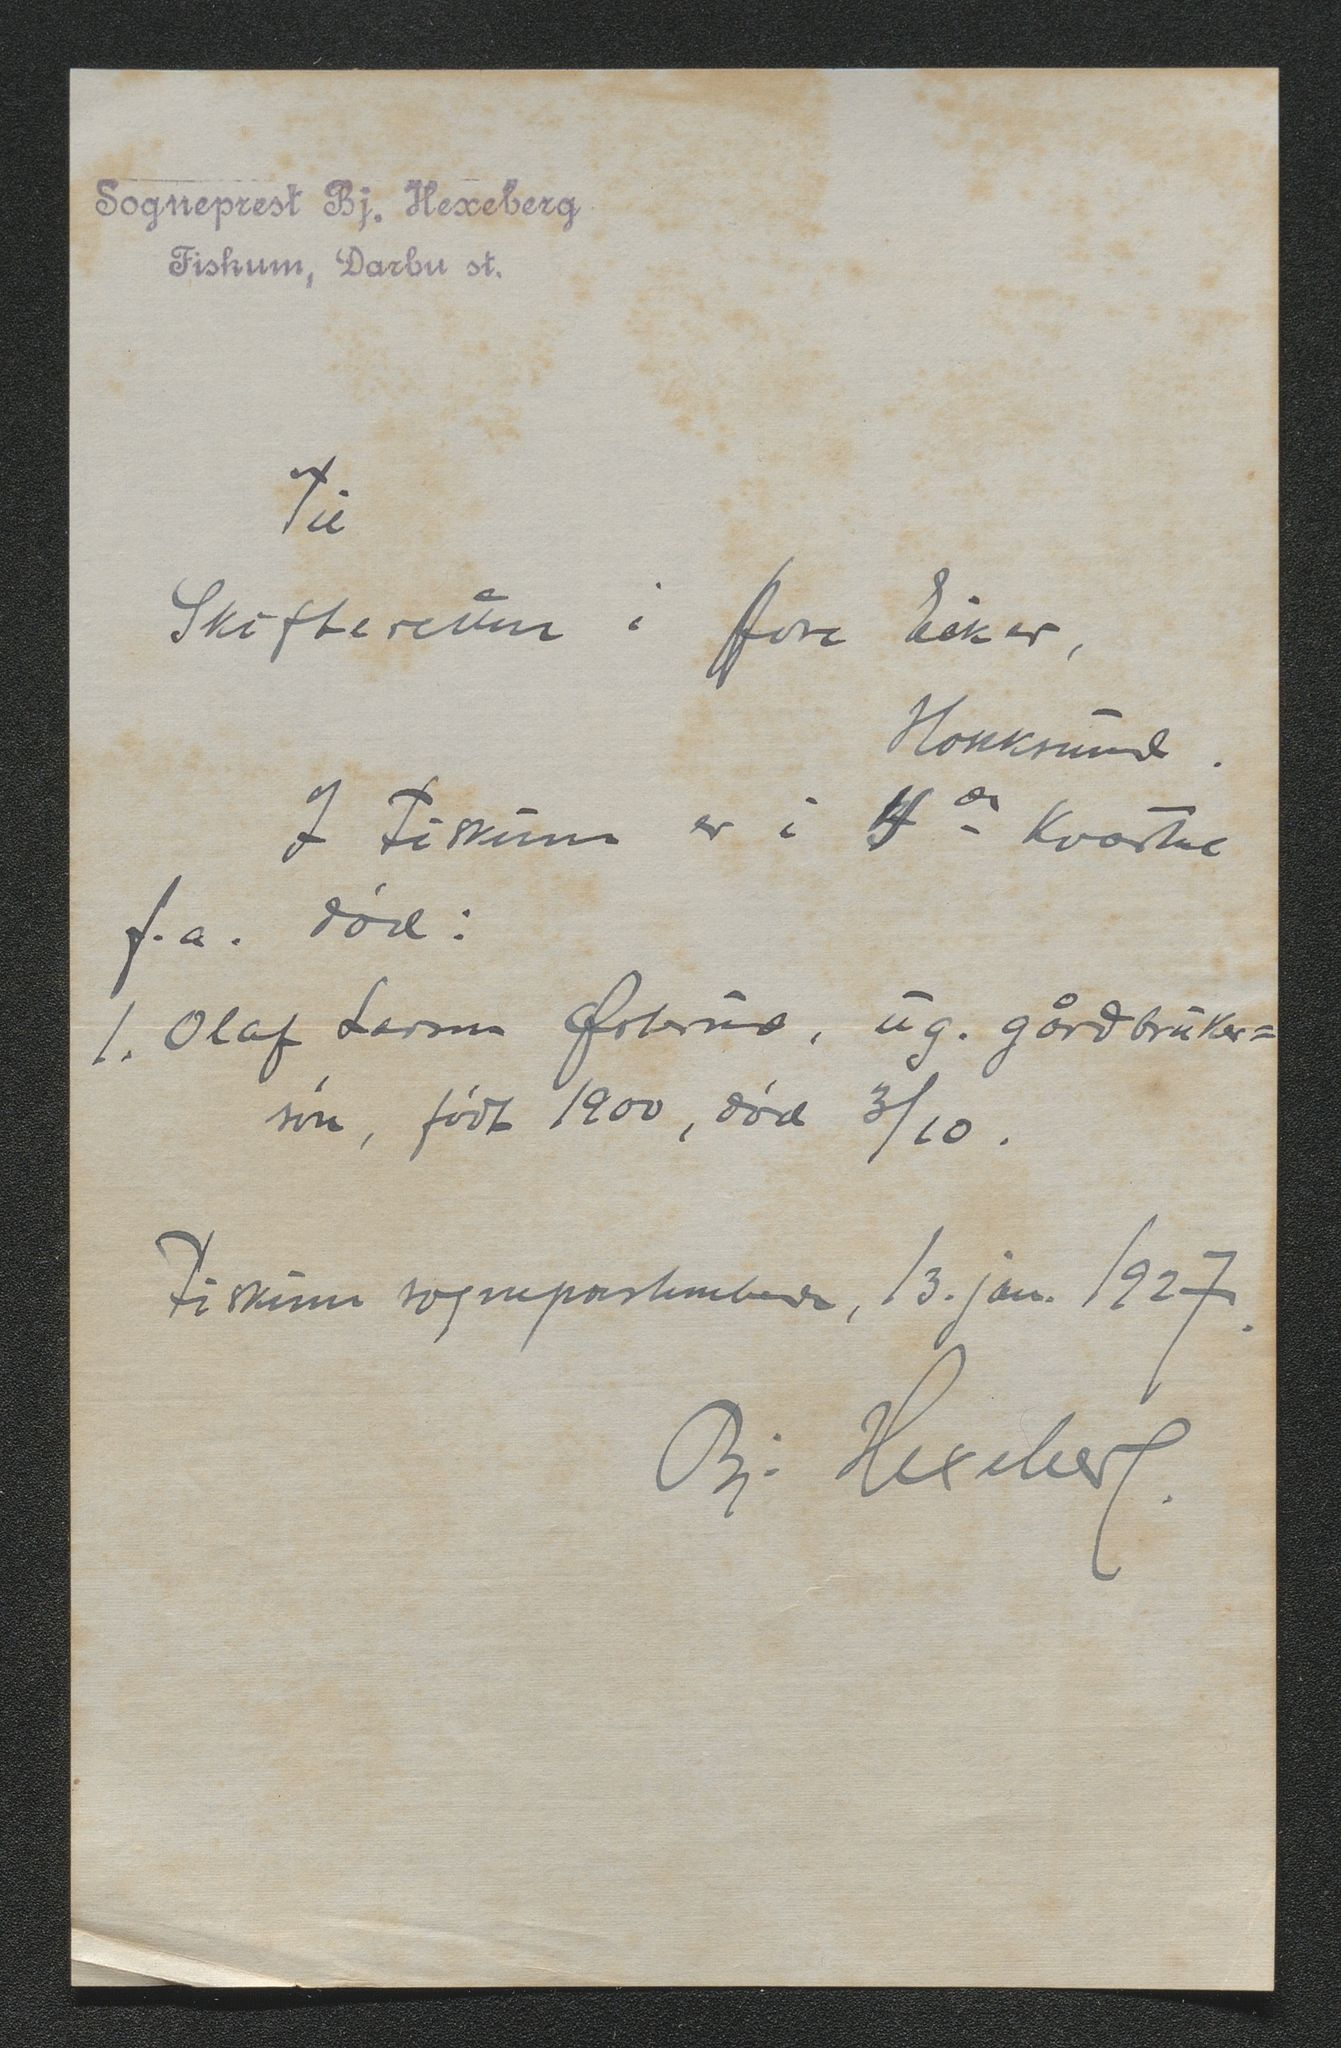 Sogneprest Bj. Hexeberg
Fiskum, Darbu st.
Til
Skifteretten i Øvre Eiker,
Hokksund.
I Fiskum er i 4de kvartal
f.a. død:
1. Olaf Larsen Østerud, ug. gårdbruker=
søn, født 1900, død 3/10.
Fiskum sogneprestembede, 13. jan. 1927.
Bj. Hexeberg.